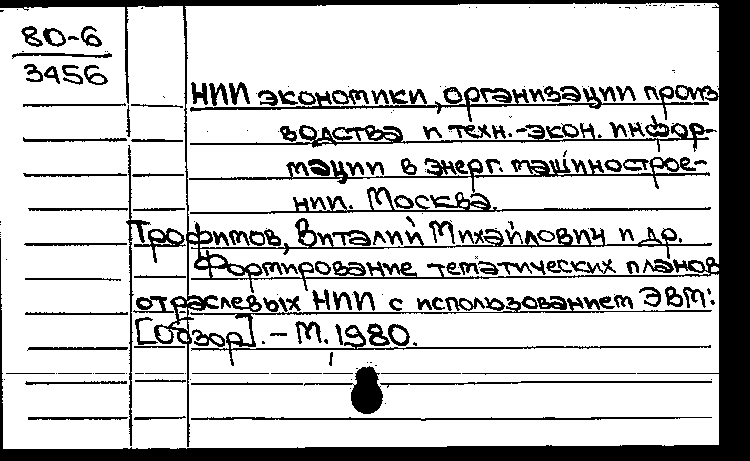 80-6
3456
НИИ экономики, организации произ
водства и техн.-экон. инфор-
мации в энерг. машинострое-
нии. Москва.
Трофимов, Виталий Михайлович и др.
Формирование тематических планов
отраслевых НИИ с использованием ЭВМ:
[Обзор]. - М. 1980.